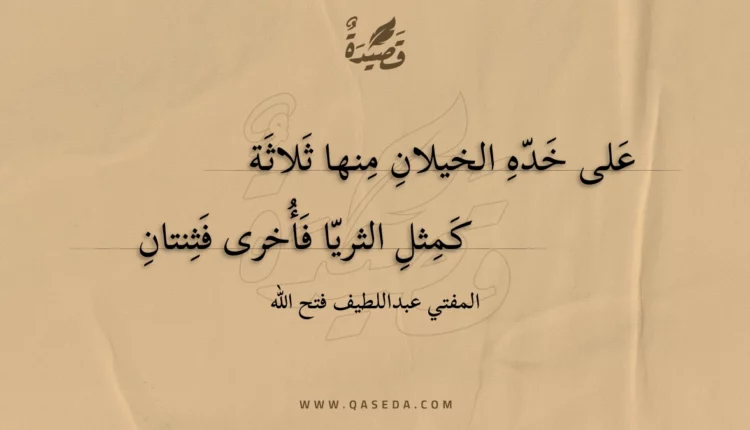 قَصِيْدَةٌ
عَلى خَدّهِ الخيلانِ مِنها ثَلاثَة
كَمِثلِ الثريّا فَأُخرى فَثِنتانِ
المفتي عبداللطيف فتح الله
WWW.QASEDA.COM